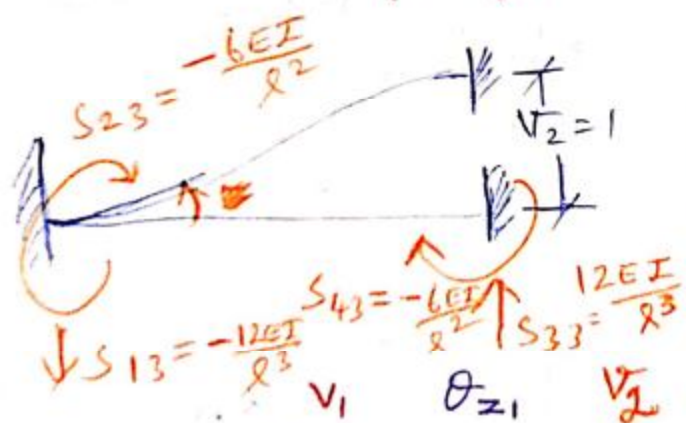 S23 = -6EI/l²
V2 = 1
S43 = -6EI/l²
S33 = 12EI/l³
S13 = -12EI/l³
V1 θz1 V2